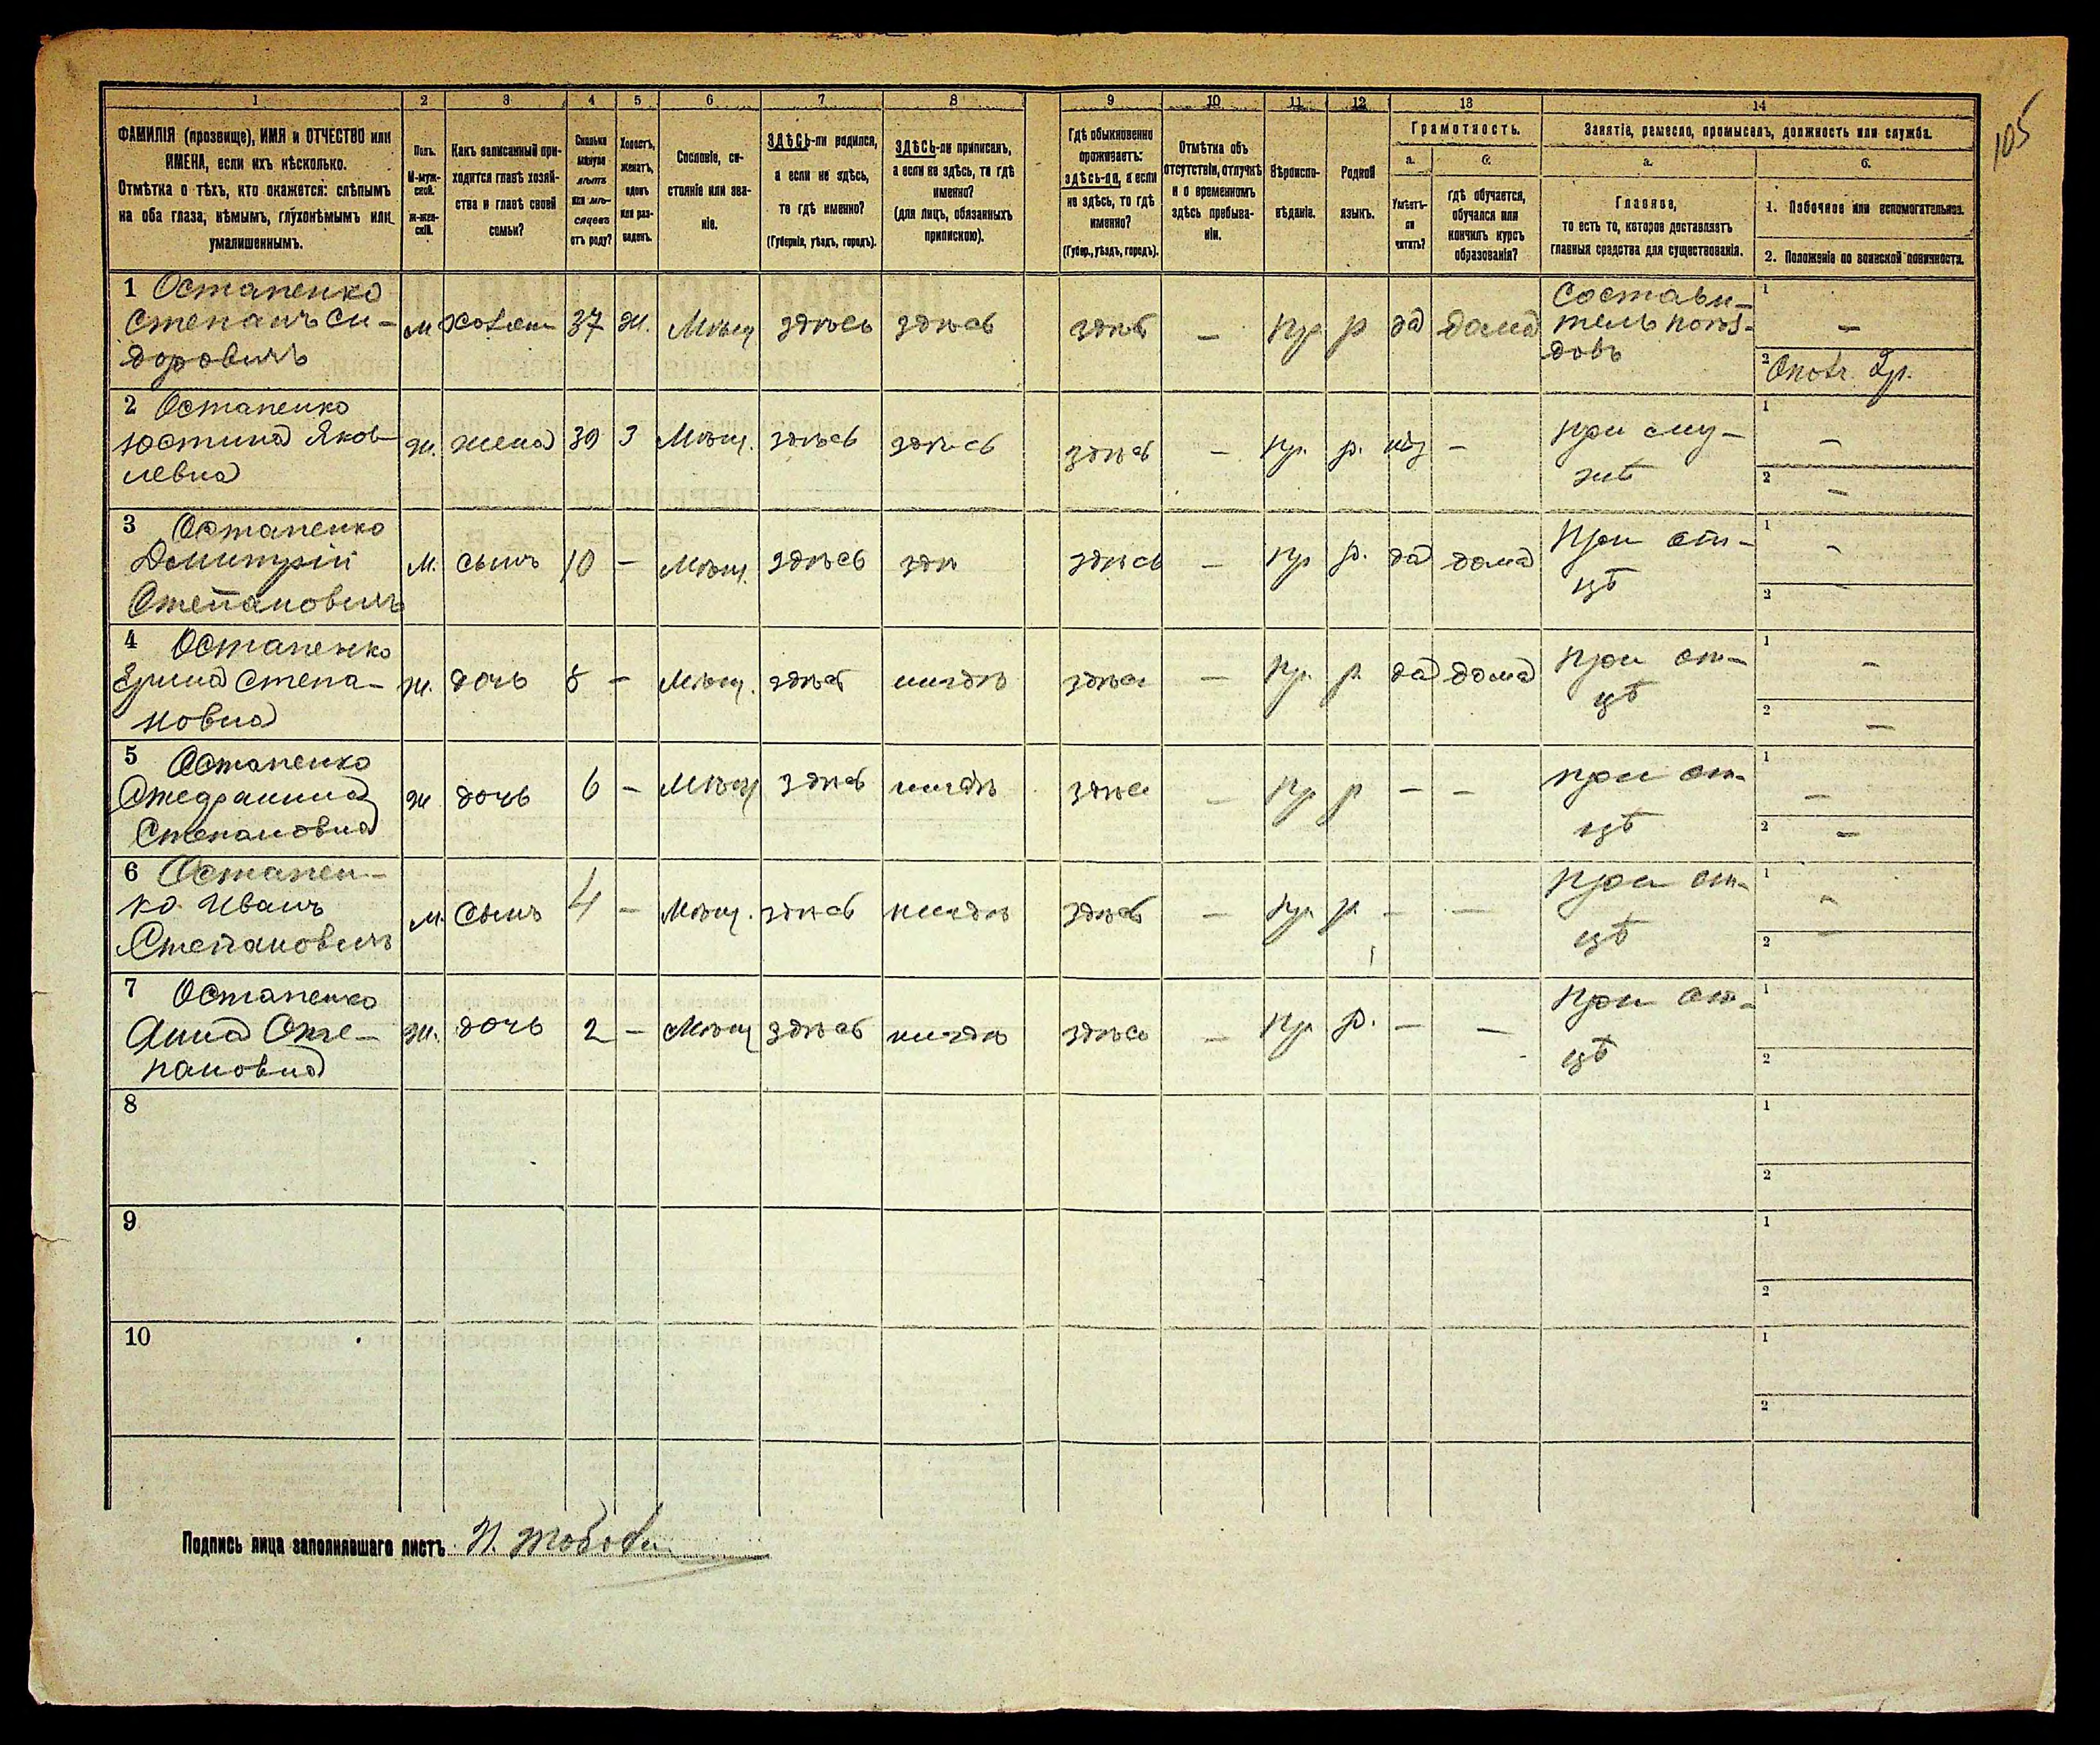 105
1 2 3 4 5 6 7 8 9 10 11 12 13 14
ФАМИЛІЯ (прозвище), ИМЯ и ОТЧЕСТВО или
ИМЕНА, если ихъ нѣсколько.
Отмѣтка о тѣхъ, кто окажется: слѣпымъ
на оба глаза, нѣмымъ, глухонѣмымъ или
умалишеннымъ.
Полъ.
М-муж-
ской.
Ж-жен-
скій.
Какъ записанный при-
ходится главѣ хозяй-
ства и главѣ своей
семьи?
Сколько
минуло
лѣтъ
или мѣ-
сяцевъ
отъ роду?
Холостъ,
женатъ,
вдовъ
или раз-
веденъ.
Сословіе, со-
стояніе или зва-
ніе.
ЗДѢСЬ-ли родился,
а если не здѣсь,
то гдѣ именно?
(Губернія, уѣздъ, городъ).
ЗДѢСЬ-ли приписанъ,
а если не здѣсь, то гдѣ
именно?
(для лицъ, обязанныхъ
припискою).
Гдѣ обыкновенно
проживаетъ:
здѣсь-ли, а если
не здѣсь, то гдѣ
именно?
(Губер., уѣздъ, городъ).
Отмѣтка объ
отсутствіи, отлучкѣ
и о временномъ
здѣсь пребыва-
ніи.
Вѣроиспо-
вѣданіе.
Родной
языкъ.
Грамотность.
а. б.
Умѣетъ-
ли
читать?
гдѣ обучается,
обучался или
кончилъ курсъ
образованія?
Занятіе, ремесло, промыселъ, должность или служба.
а. б.
Главное,
то есть то, которое доставляетъ
главныя средства для существованія.
1. Побочное или вспомогательное.
2. Положеніе по воинской повинности.
1 Остапенко
Степанъ Си-
доровичъ
м 37 ж. Мѣщ здѣсь здѣсь здѣсь — пр р да дома
Состави-
тель поѣз-
довъ
1 —
2
2 Остапенко
Юстина Яков-
левна
ж. жена 39 З Мѣщ. здѣсь здѣсь здѣсь — пр. р. —
при му-
жѣ
1 —
2 —
3 Остапенко
Димитрій
Степановичъ
м. сынъ 10 — Мѣщ. здѣсь здѣ здѣсь — пр р. да дома
При от-
цѣ
1 —
2
4 Остапенко
Степа-
новна
ж. дочь 8 — Мѣщ. здѣсь нигдѣ здѣсь — пр. р. да дома
при от-
цѣ
1 —
2 —
5 Остапенко
Степановна
ж дочь 6 — Мѣщ здѣсь нигдѣ здѣсь — пр р — —
при от-
цѣ
1 —
2 —
6 Остапен-
ко Иванъ
Степановичъ
м. Сынъ 4 — Мѣщ. здѣсь нигдѣ здѣсь — пр. р. — —
при от-
цѣ
1 —
2
7 Остапенко
Анна Сте-
пановна
ж. дочь 2 — Мѣщ здѣсь нигдѣ здѣсь — пр. р. — —
при от-
цѣ
1
2
8
1
2
9
1
2
10
1
2
Подпись лица заполнявшаго листъ